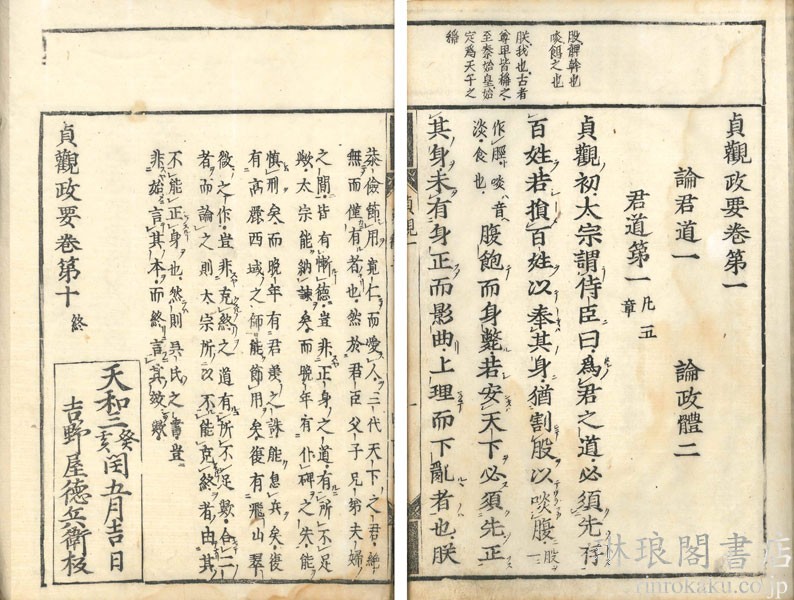 股髀幹也
啖餌之也
朕我也古者
尊卑皆稱之
至秦始皇始
定爲天子之
稱
貞觀政要卷第一
論君道一 論政體二
君道第一 凡五章
貞觀初太宗謂侍臣曰爲君之道必須先存
百姓若損百姓以奉其身猶割股以啖腹 股一
作脛啖音淡食也 腹飽而身斃若安天下必須先正
其身未有身正而影曲上理而下亂者也朕
恭儉節用寬仁而愛人三代天下之君絶
無而僅有者也然於君臣父子兄弟夫婦
之間皆有慚德豈非正身之道有所不足
歟太宗能納諫矣而晩年有仆碑之失能
愼刑矣而晩年有君羨之誅能息兵矣後
有高麗西域之師能節用矣後有飛山翠
微之作豈非克終之道有所不足歟合二
者而論之則太宗所以不能克終者由其
不能正身也然則吳氏之書豈
非始言其本而終言其效歟
貞觀政要卷第十 終
天和三癸亥閏五月吉日
吉野屋德兵衞板
琳琅閣書店
rinrokaku.co.jp